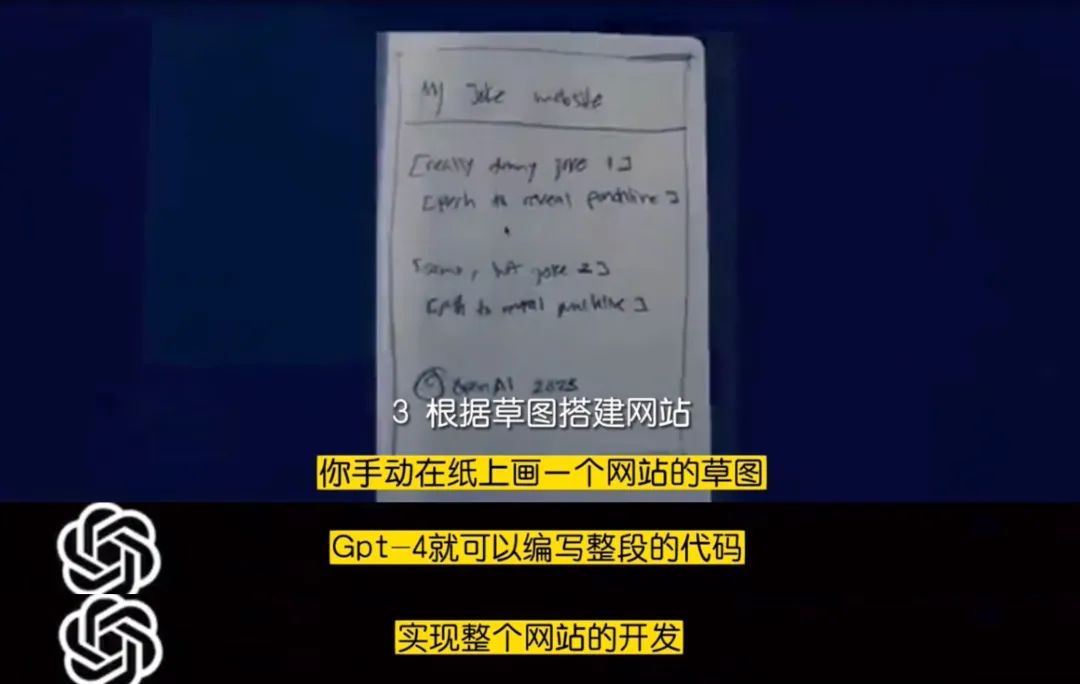 My Joke website
[really funny joke 1]
[push to reveal punchline]
[same, but joke 2]
[push to reveal punchline]
OpenAI 2023
3 根据草图搭建网站
你手动在纸上画一个网站的草图
Gpt-4就可以编写整段的代码
实现整个网站的开发